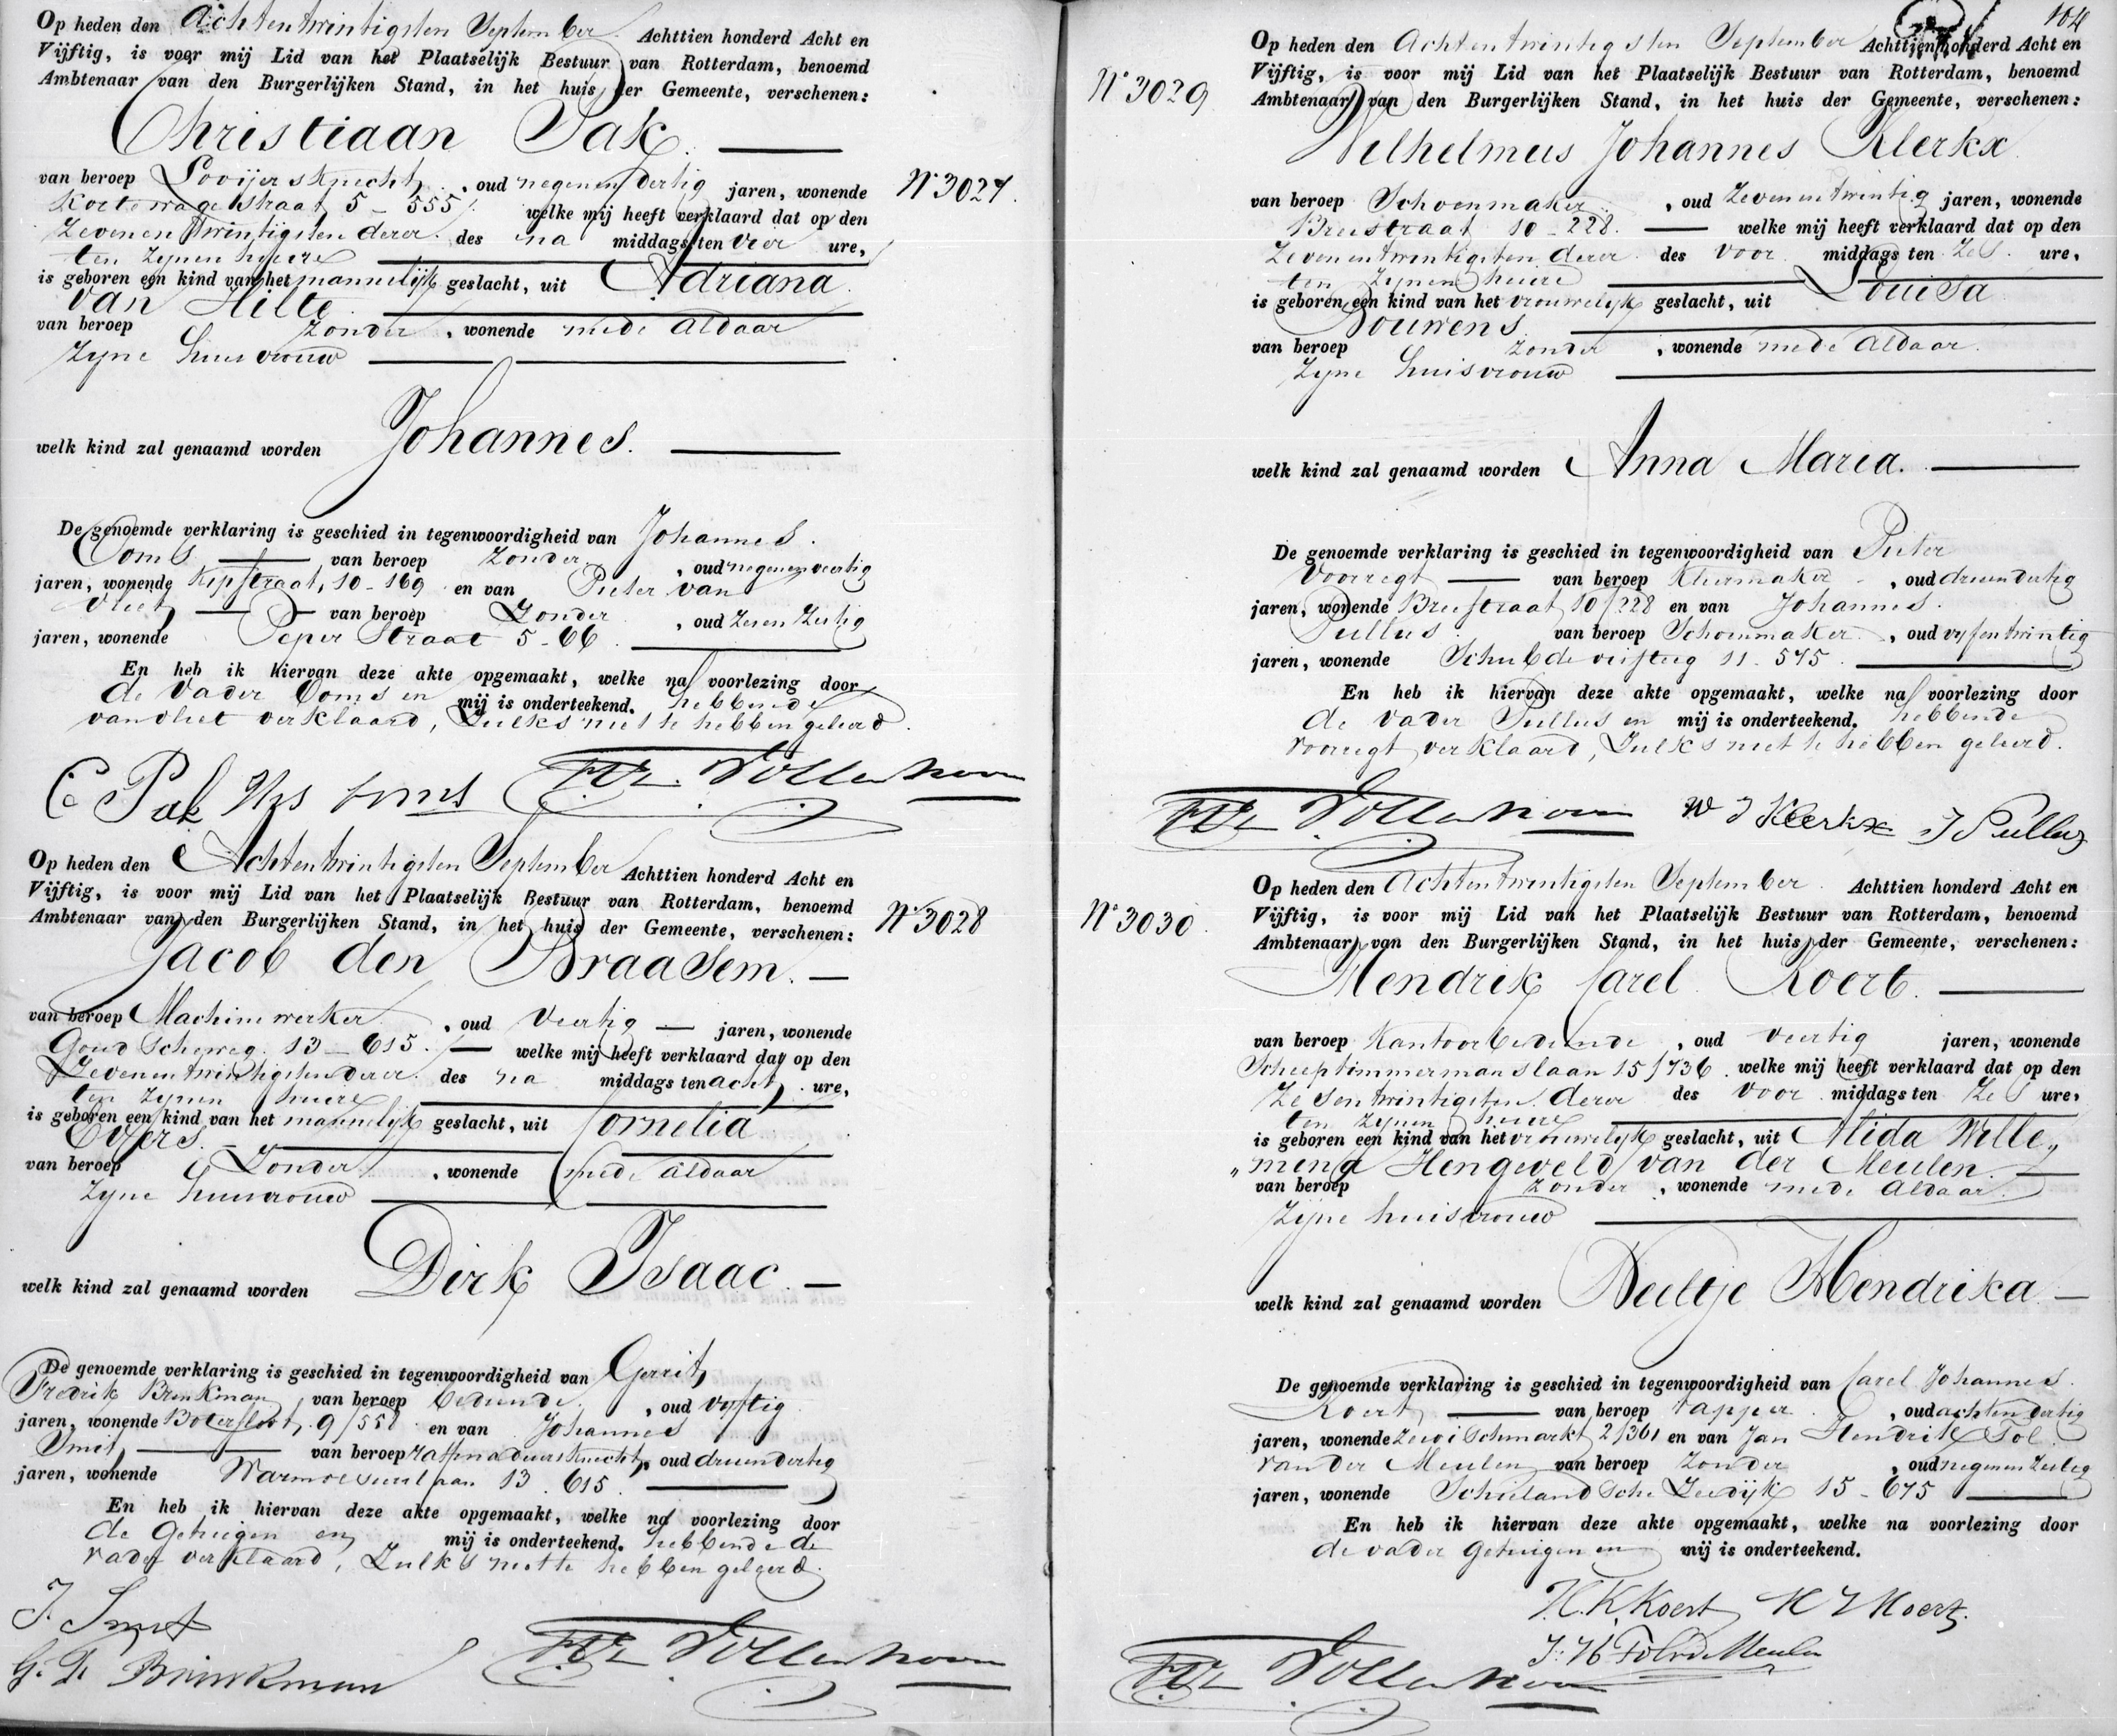 Op heden den Achtentwintigsten September Achttien honderd Acht en
Vijftig, is voor mij Lid van het Plaatselijk Bestuur van Rotterdam, benoemd
Ambtenaar van den Burgerlijken Stand, in het huis der Gemeente, verschenen:
Christiaan Pak.
van beroep Looijersknecht, oud negenendertig jaren, wonende
Kortewagestraat 5 - 555 welke mij heeft verklaard dat op den
Zevenentwintigsten dezer des na middags ten vier ure,
ten zijnen huize
is geboren een kind van het mannelijk geslacht, uit Adriana
van Hilte
van beroep Zonder, wonende mede aldaar
Zyne huisvrouw
welk kind zal genaamd worden Johannes.
De genoemde verklaring is geschied in tegenwoordigheid van Johannes
Ooms van beroep Zonder, oud negenenveertig
jaren, wonende Kipstraat, 10-169 en van Pieter van
Vliet van beroep Zonder, oud zevenzestig
jaren, wonende Peperstraat 5-66
En heb ik hiervan deze akte opgemaakt, welke na voorlezing door
de Vader Ooms en mij is onderteekend. hebbende
van Vliet verklaard, Zulks niet te hebben geleerd.
C Pak Ooms
No 3027.
Op heden den Achtentwintigsten September Achttien honderd Acht en
Vijftig, is voor mij Lid van het Plaatselijk Bestuur van Rotterdam, benoemd
Ambtenaar van den Burgerlijken Stand, in het huis der Gemeente, verschenen:
No 3028
Jacob den Braasem.
van beroep Machinewerker, oud Veertig jaren, wonende
Goudscheweg 13 - 615. welke mij heeft verklaard dat op den
Zevenentwintigsten dezer des na middags ten acht ure,
ten zijnen huize
is geboren een kind van het mannelijk geslacht, uit Cornelia
Evers.
van beroep Zonder, wonende mede aldaar
Zyne huisvrouw
welk kind zal genaamd worden Dirk Isaac.
De genoemde verklaring is geschied in tegenwoordigheid van Gerrit
Fredrik Brinkman, van beroep bediende, oud vyftig
jaren, wonende Botersloot, 9/558 en van Johannes
Smit van beroep, oud drieendertig
jaren, wonende 13. 615.
En heb ik hiervan deze akte opgemaakt, welke na voorlezing door
de Getuigen en mij is onderteekend. hebbende de
vader verklaard, Zulks niet te hebben geleerd.
J. Smit
G. F. Brinkman
104
Op heden den Achtentwintigsten September Achttien honderd Acht en
Vijftig, is voor mij Lid van het Plaatselijk Bestuur van Rotterdam, benoemd
Ambtenaar van den Burgerlijken Stand, in het huis der Gemeente, verschenen:
No 3029
Wilhelmus Johannes Klerkx
van beroep Schoenmaker, oud Zevenentwintig jaren, wonende
Breestraat 10 - 228. welke mij heeft verklaard dat op den
Zevenentwintigsten dezer des voor middags ten Zes ure,
ten zynen huize
is geboren een kind van het vrouwelyk geslacht, uit Louisa
Bouwens
van beroep Zonder, wonende mede aldaar.
Zyne huisvrouw
welk kind zal genaamd worden Anna Maria.
De genoemde verklaring is geschied in tegenwoordigheid van Pieter
Voorregt van beroep Kleermaker, oud drieendertig
jaren, wonende Breestraat 10/228 en van Johannes
Pullus van beroep Schoenmaker, oud vyfentwintig
jaren, wonende 11-575.
En heb ik hiervan deze akte opgemaakt, welke na voorlezing door
de Vader Pullus en mij is onderteekend. hebbende
Voorregt verklaard, Zulks niet te hebben geleerd.
W J Klerkx J Pullus
Op heden den Achtentwintigsten September Achttien honderd Acht en
Vijftig, is voor mij Lid van het Plaatselijk Bestuur van Rotterdam, benoemd
Ambtenaar van den Burgerlijken Stand, in het huis der Gemeente, verschenen:
No 3030.
Hendrik Carel Koert.
van beroep Kantoorbediende, oud Veertig jaren, wonende
Scheeptimmermanslaan 15/736. welke mij heeft verklaard dat op den
Zesentwintigsten dezer des voor middags ten Zes ure,
ten zynen huize
is geboren een kind van het vrouwelyk geslacht, uit Alida Wille„
„mena Hengeveld van der Meulen.
van beroep Zonder, wonende mede aldaar.
Zyne huisvrouw
welk kind zal genaamd worden Neeltje Hendrika
De genoemde verklaring is geschied in tegenwoordigheid van Carel Johannes
Koert van beroep tapper, oud achtendertig
jaren, wonende 2/361 en van Jan Hendrik Fol
van der Meulen van beroep Zonder, oud negenenzestig
jaren, wonende Schielandsche Zeedijk 15-675
En heb ik hiervan deze akte opgemaakt, welke na voorlezing door
de vader Getuigen en mij is onderteekend.